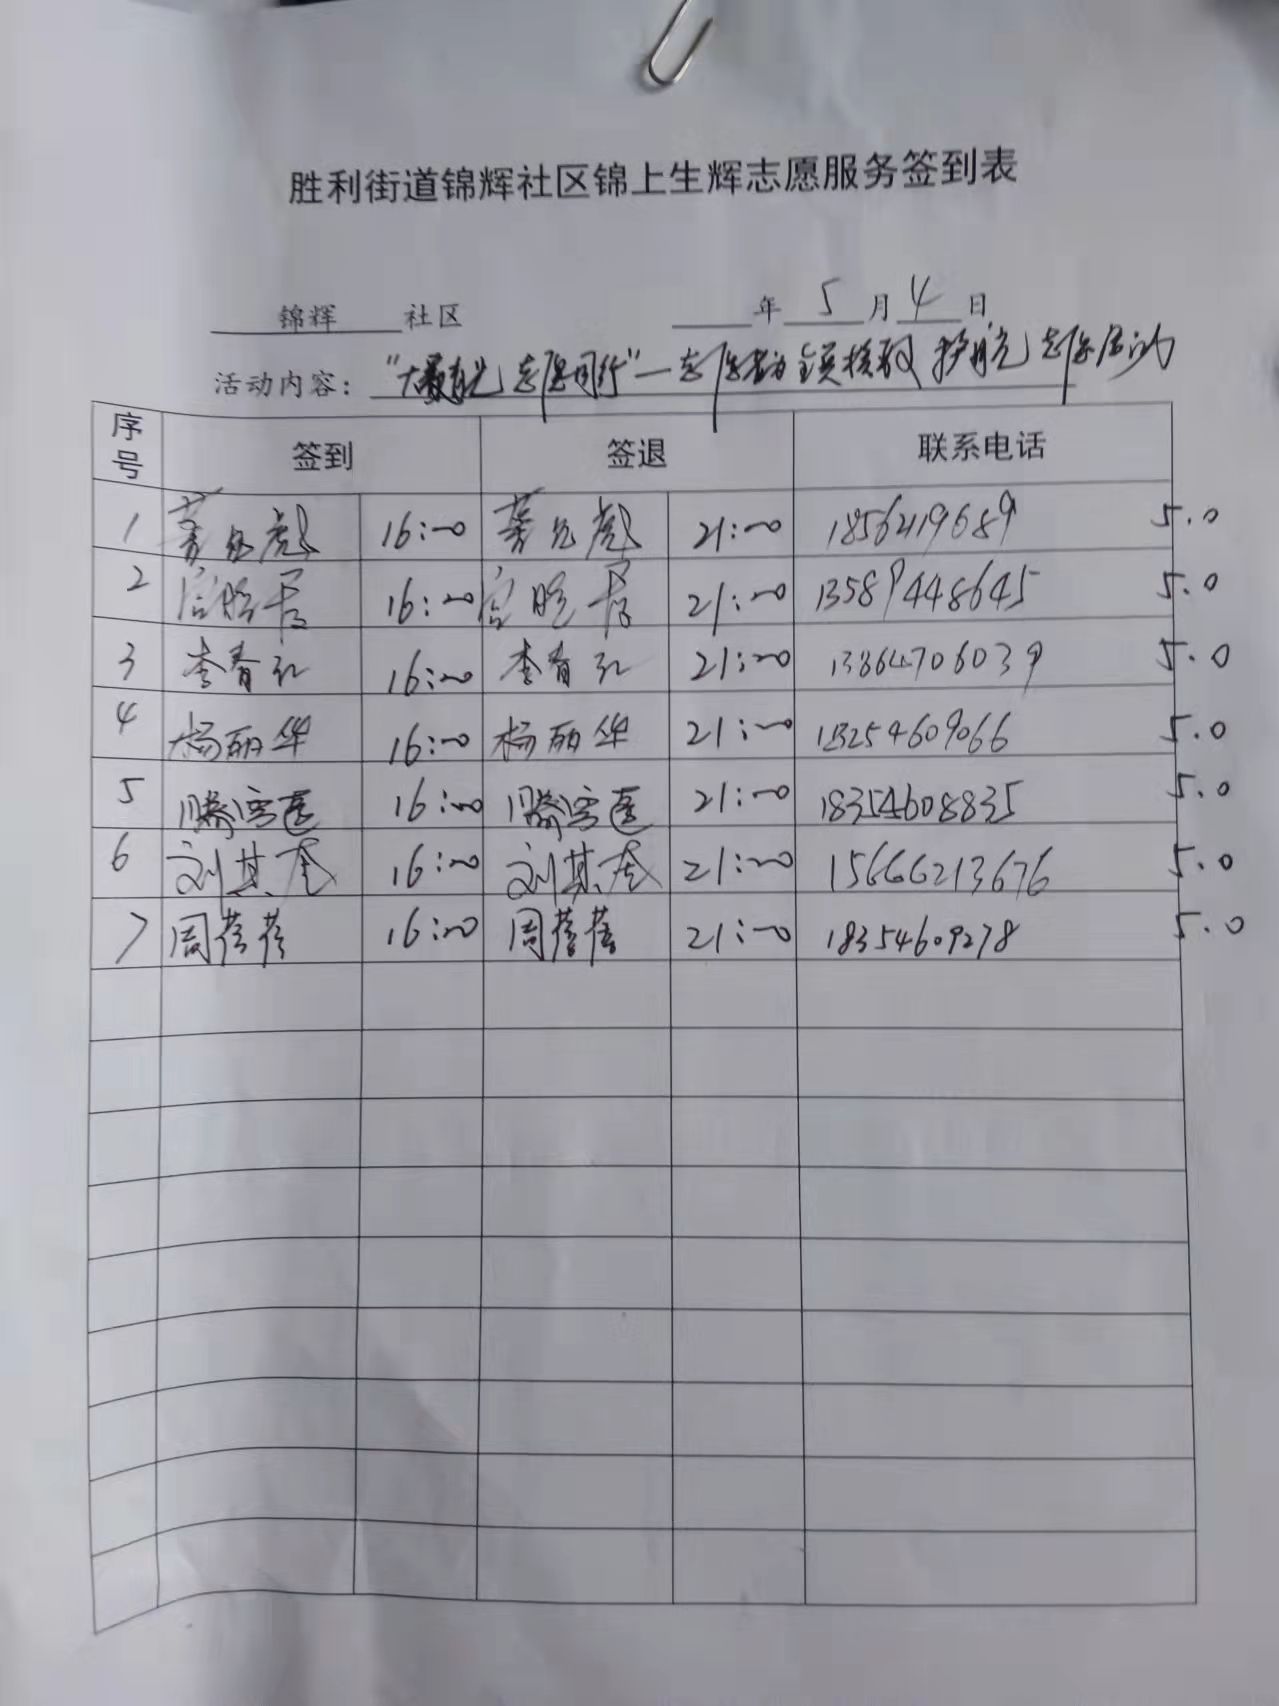 胜利街道锦辉社区锦上生辉志愿服务签到表
锦辉 社区 年 5 月 4 日
活动内容： 志愿同行"— 护航志愿活动
序号 签到 签退 联系电话
1 16:00 21:00 1856219689 5.0
2 16:00 21:00 13589448645 5.0
3 李春红 16:00 李春红 21:00 13864706039 5.0
4 杨丽华 16:00 杨丽华 21:00 13254609066 5.0
5 滕雪莲 16:00 滕雪莲 21:00 18354608835 5.0
6 刘其奎 16:00 刘其奎 21:00 15666213676 5.0
7 周蓓蓓 16:00 周蓓蓓 21:00 18354609278 5.0